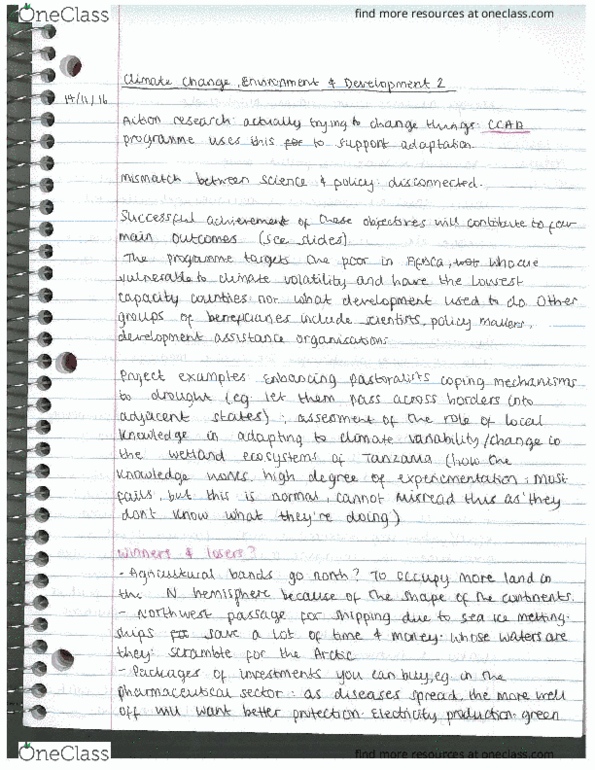 OneClass
find more resources at oneclass.com
Climate Change, Environment & Development 2
14/11/16
Action research: actually trying to change things: CCAA
programme uses this for to support adaptation.
mismatch between science & policy: disconnected.
Successful achievement of these objectives will contibute to four
main outcomes (see slides)
The programme targets the poor in Africa, who are
vulnerable to climate volatility and have the lowest
capacity counties nor what development used to do. Other
groups of beneficiaries include scientists, policy makers,
development assistance organisations
Project examples: Enhancing pastoralists coping mechanisms
to drought (eg. let them pass across borders into
adjacent states); assessment of the role of local
knowledge in adapting to climate variability/change in
the wetland ecosystems of Tanzania (how the
knowledge works. high degree of experimentation: most
fails, but this is normal, cannot misread this as 'they
dont know what they're doing')
Winners & losers?
- Agricultural bands go north? To occupy more land in
the N hemisphere because of the shape of the continents.
- Northwest passage for shipping due to sea ice melting.
ships save a lot of time & money. whose waters are
they: scramble for the Arctic
- Packages of investments you can buy, eg. in the
pharmaceutical sector: as diseases spread, the more well
off will want better protection. Electricity production: green
OneClass
find more resources at oneclass.com